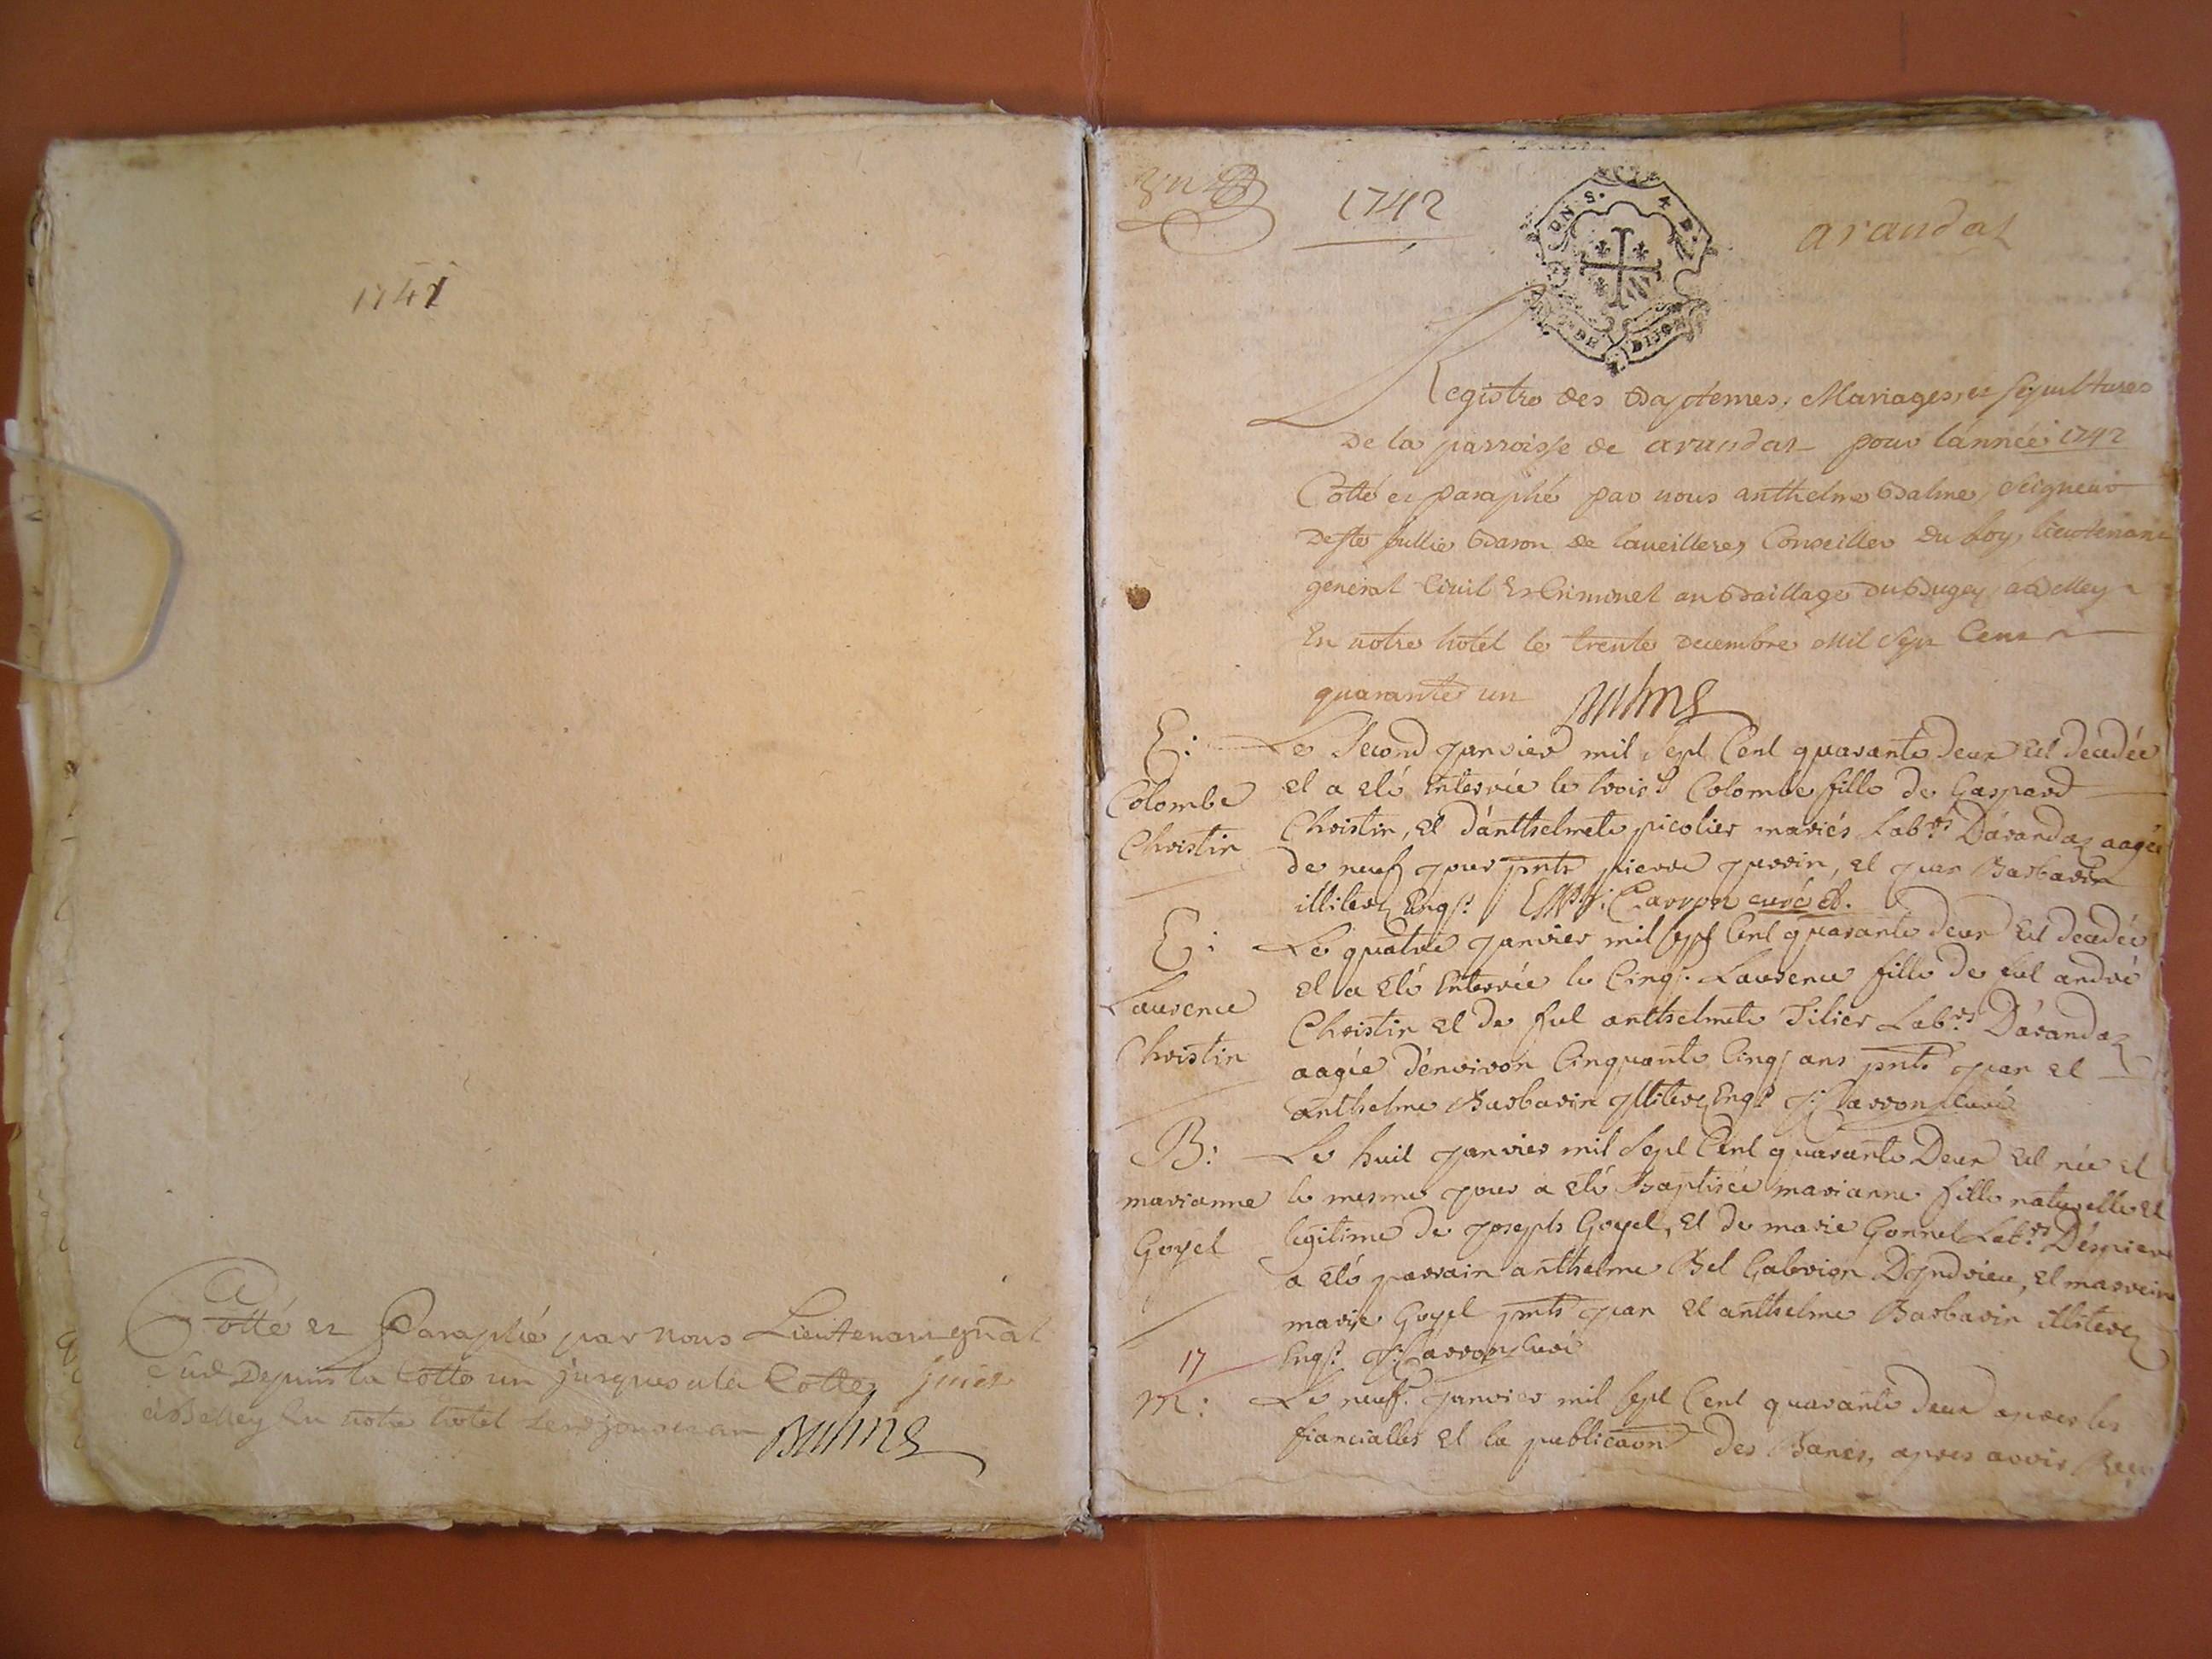 1741
Cotté et Paraphé par nous Lieutenant gñal
Civil Depuis la Cotte un jusques a la Cotte
a Belley En notre hotel
Balme
Un
1742
arandas
DE DIJON
Registre des Baptemes, Mariages, et sepultures
De la parroisse de arandas pour lánnée 1742
Cotté et paraphé par nous anthelme Balme, seigneur
De ste Jullie Baron de laveilleres Conseiller Du Roy, lieutenant
général Civil Et Criminel au Baillage Du Bugey, a Belley
En notre hotel le trente decembre Mil Sept Cent
quarante un Balme
E:
Colombe
Christin
Le Second janvier mil sept Cent quarante deux Est decedée
Et a eté Enterrée le trois.e Colombe fille de Gaspard
Christin, Et d'anthelmete picolier mariés Lab.rs D'arandaz aagée
de neuf jour pnts pierre juvvin, et jean Barbarin
illiterez Enqs. Carron curé
E:
Laurence
Christin
Le quatre janvier mil sept Cent quarante deux Est decedée
Et a eté Enterrée le Cinq. Laurence fille de fut andré
Christin Et de fut anthelmete Tilier Lab.rs D'arandaz
aagée d'environ Cinquante Cinq ans pnts jean et
anthelme Barbarin jlliterez Enqs J: Carron Curé
B:
marianne
Goyet
Le huit janvier mil sept Cent quarante Deux Est née Et
le mesme jour a eté Baptisée marianne fille naturelle et
legitime de joseph Goyet, Et de marie Gonnet Lab.rs D'espierre
a eté parrain anthelme Bel Gabrion D'jndrieu, et marreine
marie Goyet pnts jean Et anthelme Barbarin illiterez
Enqs. J: Carron Curé
17
M:
Le neuf. janvier mil sept Cent quarante deux apres les
fiancialles Et la publicaõn des Bancs, apres avoir Reçu